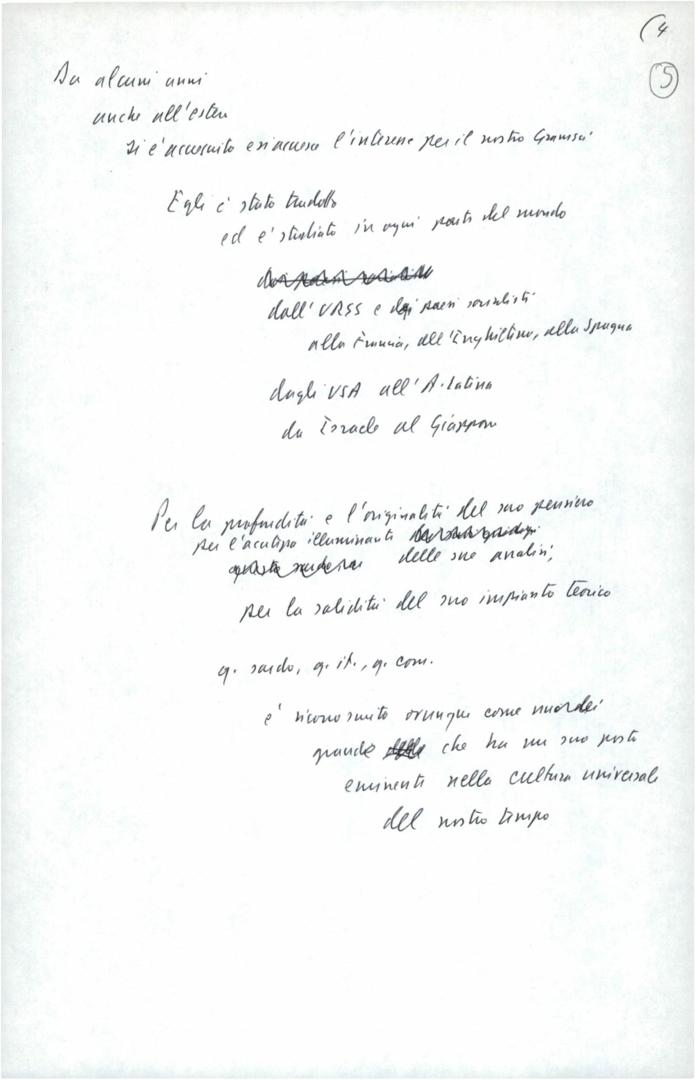 (4
5
Da alcuni anni
anche all'estero
si è accresciuto e si accresce l'interesse per il nostro Gramsci
Egli è stato tradotto
ed è studiato in ogni parte del mondo
dall'URSS e dai paesi socialisti
alla Francia, all'Inghilterra, alla Spagna
dagli USA all'A. Latina
da Israele al Giappone
Per la profondità e l'originalità del suo pensiero
per l'acutezza illuminante
delle sue analisi,
per la validità del suo impianto teorico
q. sardo, q. it., q. com.
è riconosciuto ovunque come uno dei
grandi che ha un suo posto
eminente nella cultura universale
del nostro tempo